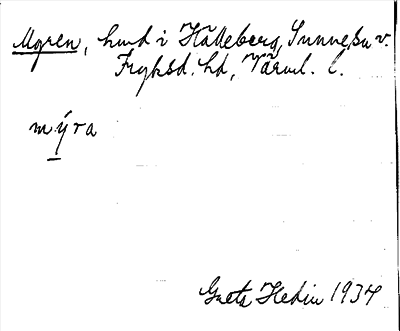 Myren, hmd i Hålleberg, Sunne sn v.
Fryksd. hd, Värml. l.
mýra
Greta Hedin 1934